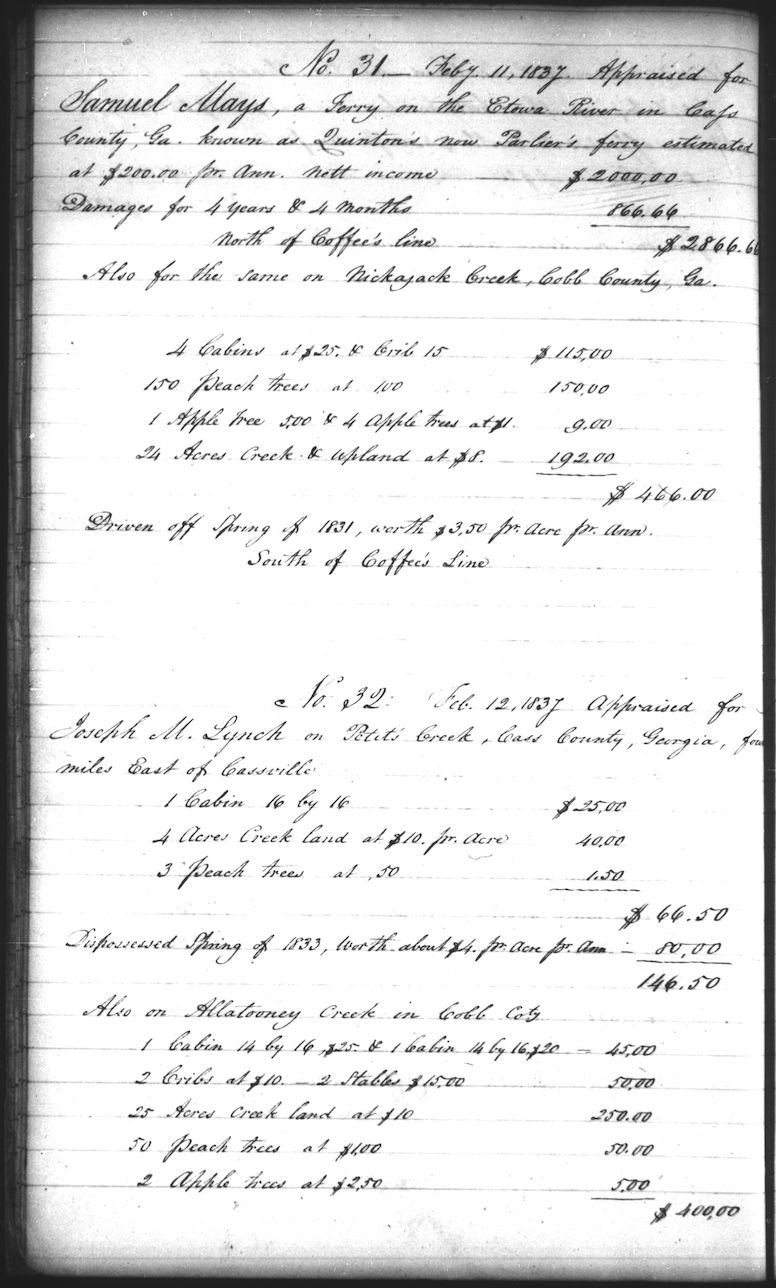 No. 31. — Feby. 11, 1837. Appraised for
Samuel Mays, a Ferry on the Etowa River in Cass
County, Ga. known as Quinton's now Parlier's ferry estimated
at $200.00 pr. Ann. nett income $2000,00
Damages for 4 years & 4 months 866.66
North of Coffee's line $2866.66
Also for the same on Nickajack Creek, Cobb County, Ga.
4 Cabins at $25. & Crib 15 $115,00
150 Peach trees at 1,00 150,00
1 Apple tree 5,00 & 4 Apple trees at $1. 9.00
24 Acres Creek & upland at $8. 192.00
$466.00
Driven off Spring of 1831, worth $3,50 pr. Acre pr. Ann.
South of Coffee's Line
No. 32. Feb. 12, 1837 Appraised for
Joseph M. Lynch on Petit's Creek, Cass County, Georgia, four
miles East of Cassville
1 Cabin 16 by 16 $25,00
4 Acres Creek land at $10. pr. Acre 40,00
3 Peach trees at ,50 1.50
$66.50
Dispossessed Spring of 1833, worth about $4. pr. Acre pr. Ann — 80,00
146.50
Also on Allatooney Creek in Cobb Coty
1 Cabin 14 by 16, $25. & 1 Cabin 14 by 16, $20 — 45,00
2 Cribs at $10. — 2 Stables $15.00 50,00
25 Acres Creek land at $10 250.00
50 Peach trees at $1,00 50.00
2 Apple trees at $2,50 5,00
$400,00